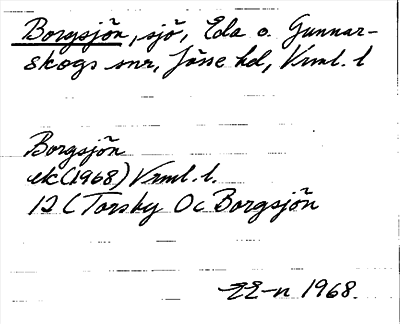 Borgsjön, sjö, Eda o. Gunnar-
skogs snr, Jösse hd, Vrml. l
Borgsjön
ek (1968) Vrml. l.
12 C Torsby Oc Borgsjön
1968.